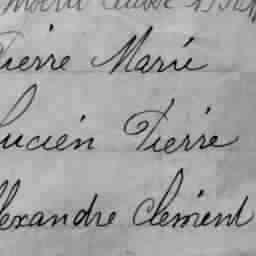 Pierre Marie
Lucien Pierre
Alexandre Clement